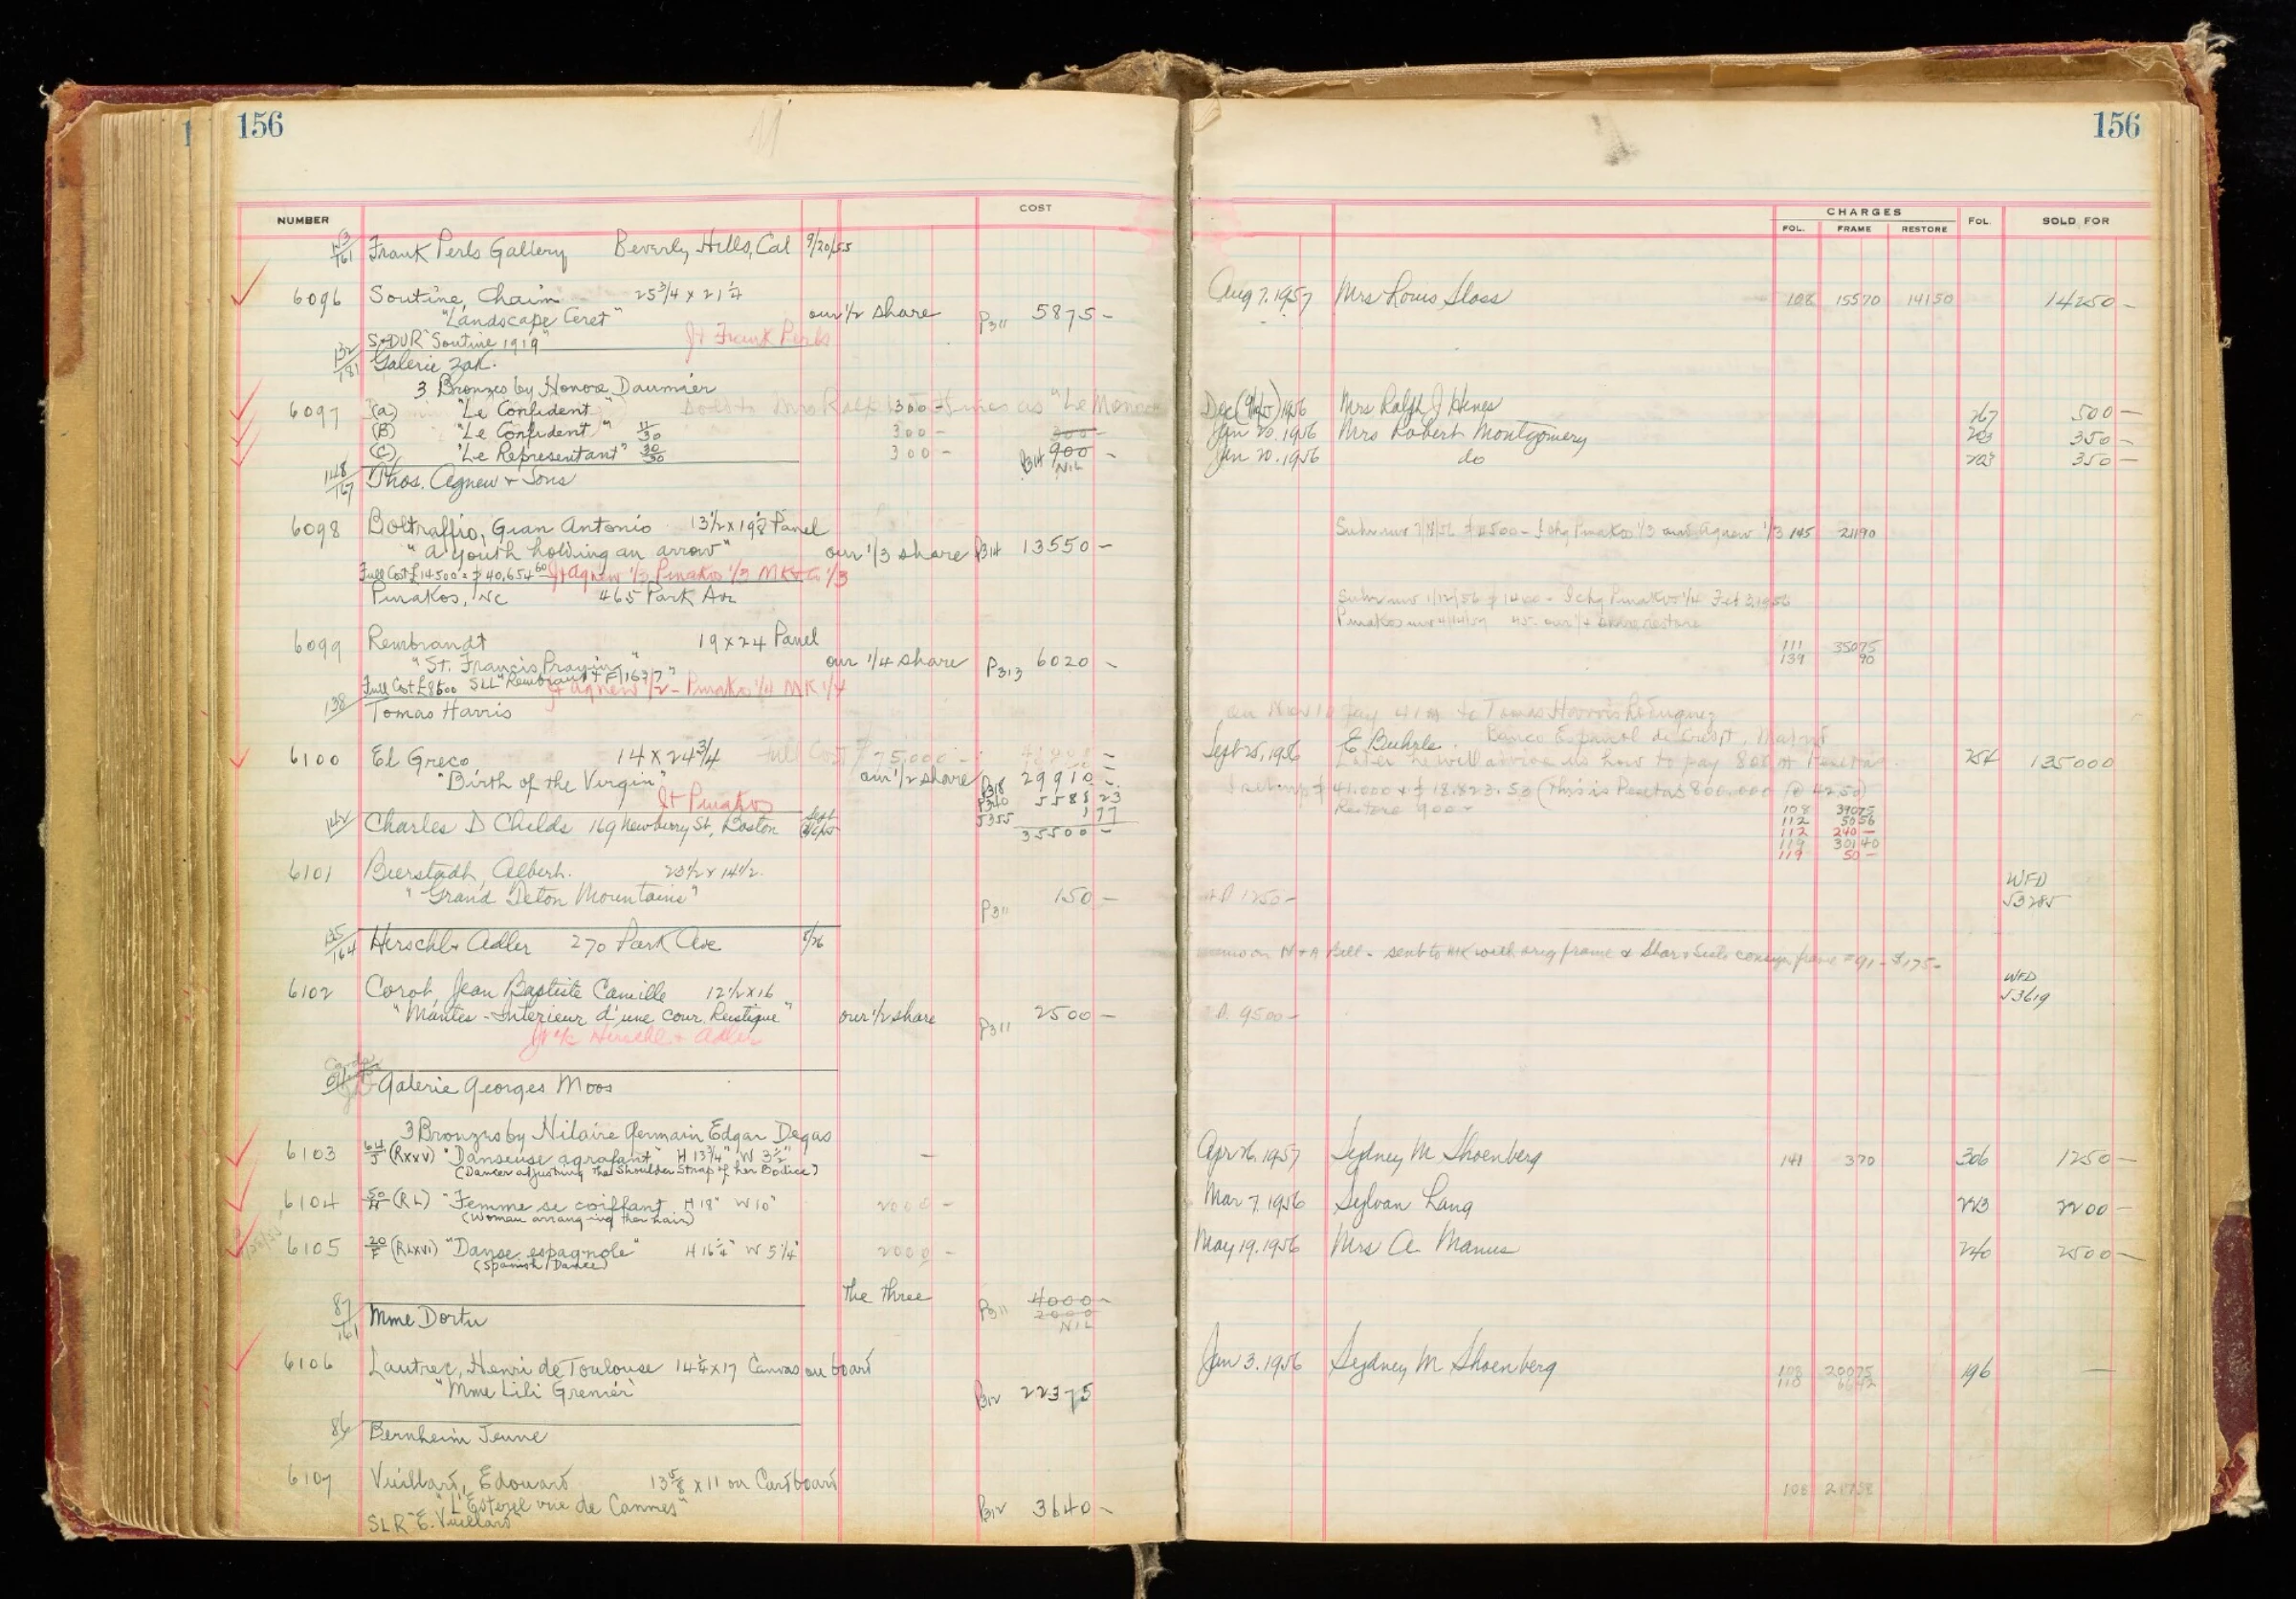 156
NUMBER COST
Frank Perls Gallery Beverly Hills, Cal 9/20/55
6096 Soutine, Chaim 25 3/4 x 21 1/4
"Landscape Ceret" our 1/2 share P311 5875 -
S+DUR "Soutine 1919" Jt Frank Perls
Galerie Zak.
3 Bronzes by Honore Daumier
6097 (a) "Le Confident" 300 -
(B) "Le Confident" 11/30 300 - 300 -
(C) "Le Representant" 30/30 300 - P314 900 -
NIL
148/167 Thos. Agnew + Sons
6098 Boltraffio, Gian Antonio 13 1/2 x 19 1/8 Panel
"a youth holding an arrow" our 1/3 share P314 13550 -
Full Cost £14500 = $40,654 60 Jt Agnew 1/3 Pinakos 1/3 MK+Co 1/3
Pinakos, Inc 465 Park Ave
6099 Rembrandt 19 x 24 Panel
"St. Francis Praying" our 1/4 share P313 6020 -
Full Cost £8600 SLL "Rembrandt F 1637" Jt Agnew 1/2 - Pinakos 1/4 MK 1/4
138 Tomas Harris
6100 El Greco 14 x 24 3/4 Full Cost $75,000 -
"Birth of the Virgin" our 1/2 share P318 29910 -
Jt Pinakos P340 5588 23
5355 1 77
142 Charles D Childs 169 Newburry St, Boston 35500 -
6101 Bierstadt, Albert. 20 1/2 x 14 1/2.
"Grand Teton Mountains" P311 150 -
135/164 Herschl + Adler 270 Park Ave 8/26
6102 Corot, Jean Baptiste Camille 12 1/2 x 16
"Mantes - Interieur d'une cour Rustique" our 1/2 share P311 2500 -
Jt 1/2 Herschl + Adler
Galerie Georges Moos
3 Bronzes by Hilaire Germain Edgar Degas
6103 64/J (RXXV) "Danseuse agrafant" H 13 3/4" W 3 1/2" -
(Dancer adjusting the Shoulder Strap of her Bodice)
6104 50/H (RL) "Femme se coiffant H 18" W 10" 2000 -
(Woman arranging her hair)
6105 20/F (RLXVI) "Danse espagnole" H 16 1/4" W 5 1/4" 2000 -
(Spanish Dance)
the three P311 4000 -
2000
NIL
87/161 Mme Dortu
6106 Lautrec, Henri de Toulouse 14 1/4 x 17 Canvas on board
"Mme Lili Grenier" P312 22375
86 Bernheim Jeune
6107 Vuillard, Edouard 13 5/8 x 11 on Cardboard
"L'Esterel vue de Cannes" P312 3640 -
SLR "E. Vuillard"
156
CHARGES
FOL. FRAME RESTORE FOL. SOLD FOR
Aug 7. 1957 Mrs Louis Sloss 108 15570 14150 14250 -
Mrs Ralph J Hines 267 500 -
Jan 20. 1956 Mrs Robert Montgomery 203 350 -
Jan 20. 1956 do 203 350 -
145 21190
111 35075
139 90
Sept 25, 1956 E Buhrle. 254 135000
Later he will advise us how to pay
$41.000 + $18.823.53 (This is Pesetas 800.000 @ 42.50)
Restore 900 - 108 39075
112 5056
112 240 -
119 30140
119 50 -
WFD
1250 - 53285
sent to MK with orig frame
WFD
53619
9500 -
Apr 26. 1957 Sydney M Shoenberg 141 370 306 1250 -
Mar 7. 1956 Sylvan Lang 223 2200 -
May 19. 1956 Mrs A. Manus 240 2500 -
Jan 3. 1956 Sydney M Shoenberg 108 20075 196 -
108 21758